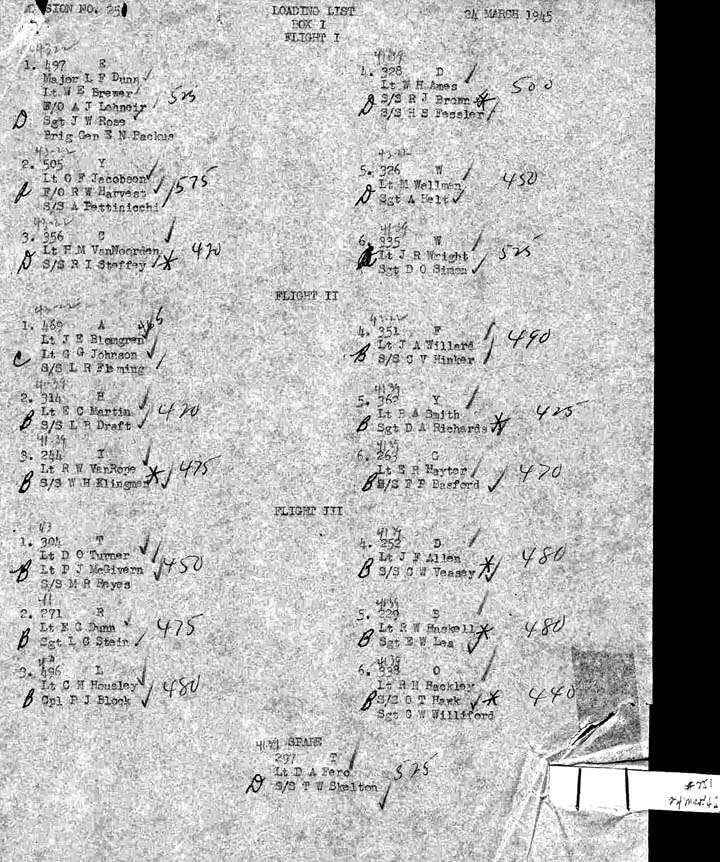 MISSION NO. 251
LOADING LIST
24 MARCH 1945
BOX I
FLIGHT I
43-22
1. 497 E
Major L F Dunn
Lt W E Brewer
F/O A J Lehneir
525
D Sgt J W Rose
Brig Gen E N Backus
43-22
2. 505 Y
Lt O F Jacobson
F/O R W Harvest
575
S/S A Pettinicchi
43-22
3. 356 C
Lt H M VanNoorden
470
D S/S R I Steffey *
4139
4. 328 D
Lt W H Ames
500
D S/S R J Brown *
S/S H S Fessler
43-22
5. 326 W
Lt M Wallman
450
D Sgt A Helt
4139
6. 335 W
Lt J R Wright
525
Sgt D O Simon
FLIGHT II
43-22
1. 469 A
465
Lt J E Blomgren
C Lt G G Johnson
S/S L R Fleming
41-39
2. 314 H
Lt E C Martin
420
B S/S L R Draft
41-39
3. 244 I
Lt R W VanRope *
475
B S/S W H Klingman
43-22
4. 351 F
Lt J A Willard
490
B S/S C V Hinker
4139
5. 362 Y
Lt B A Smith
425
B Sgt D A Richards *
4139
6. 263 G
Lt E R Hayter
470
B S/S F P Basford
FLIGHT III
43
1. 304 T
Lt D O Turner
B Lt P J McGivern
450
S/S M R Hayes
41
2. 271 R
Lt E C Dunn
475
B Sgt L G Stein
3. 496 L
Lt C H Housley
480
B Cpl P J Block
4139
4. 252 D
Lt J F Allen
480
B S/S C W Veasey *
4139
5. 229 B
Lt R W Haskell *
480
B Sgt E W Lea
4139
6. 338 O
Lt R H Hackley
440
B S/S O T Hawk *
Sgt G W Williford
4139 SPARE
297 T
Lt D A Fero
525
D S/S T W Skelton